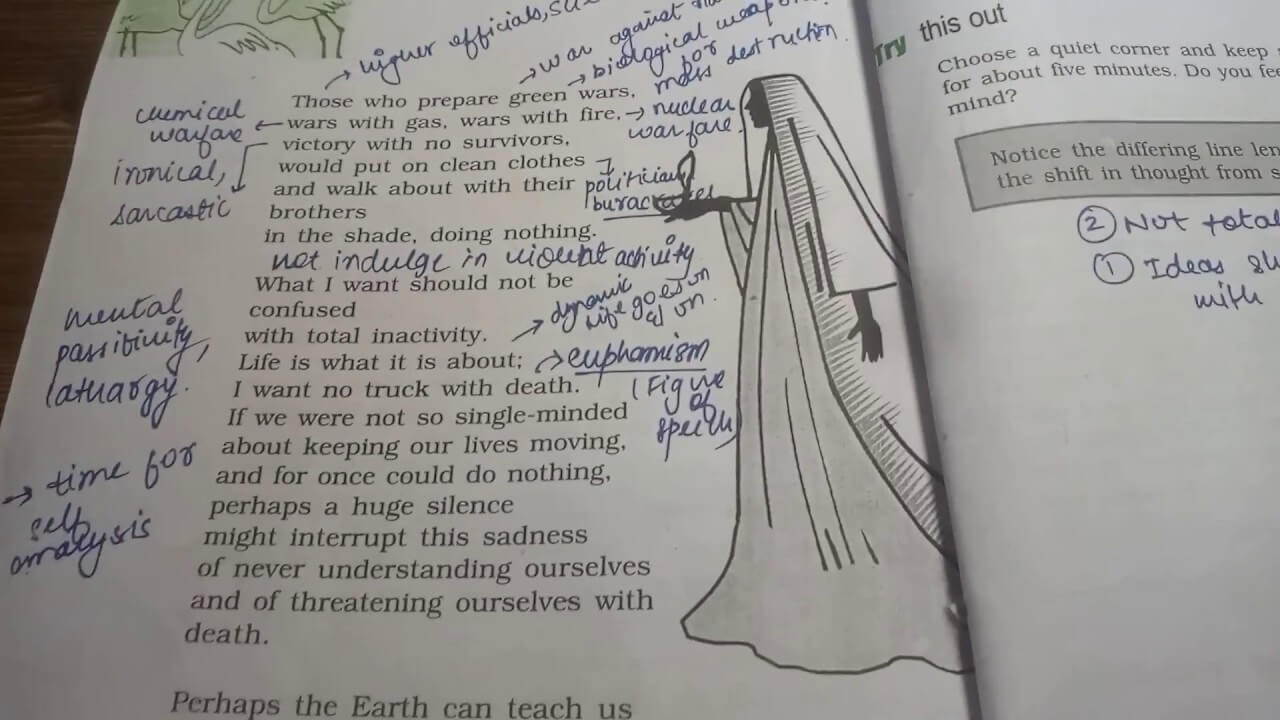 → higher officials,
→ war against
→ biological weapons for
mass destruction.
Those who prepare green wars,
chemical
warfare ← wars with gas, wars with fire, → nuclear
warfare.
victory with no survivors,
ironical,
sarcastic
would put on clean clothes
and walk about with their
brothers
politician
in the shade, doing nothing.
not indulge in violent activity
What I want should not be
confused
with total inactivity.
→ dynamic
life goes on
& on.
mental
passitivity,
lathargy.
Life is what it is about;
→ euphamism
(Figure
of
speech)
I want no truck with death.
If we were not so single-minded
about keeping our lives moving,
and for once could do nothing,
→ time for
self
analysis
perhaps a huge silence
might interrupt this sadness
of never understanding ourselves
and of threatening ourselves with
death.
Perhaps the Earth can teach us
Try this out
Choose a quiet corner and keep
for about five minutes. Do you
mind?
Notice the differing line
the shift in thought from
② Not total
① Ideas
with